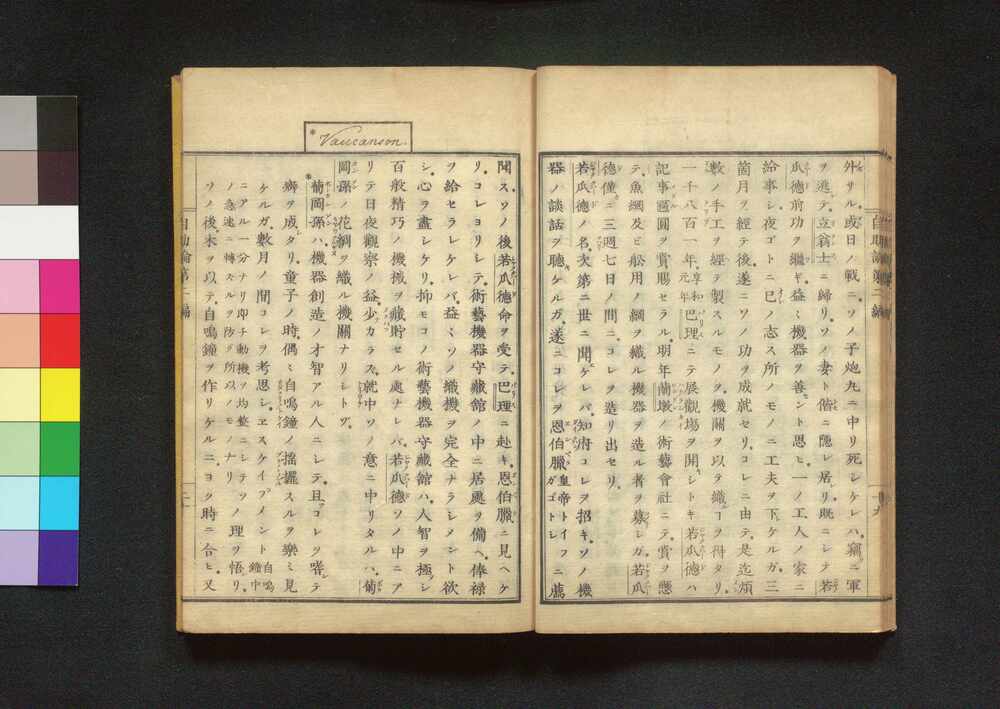 外リシ或日ノ戰ニソノ子炮丸ニ中リ死シケレバ竊ニ軍
ヲ逃テ立翁士ニ歸リソノ妻ト偕ニ隱レ居リ既ニシテ若
瓜德前功ヲ繼ギ益〻機器ヲ善セント思ヒ一ノ工人ノ家ニ
給事シ夜ゴトニ己ノ志ス所ノモノニ工夫ヲ下ケルガ三
箇月ヲ經テ後遂ニソノ功ヲ成就セリコレニ由テ是迄煩
數ノ手工ヲ經テ製スルモノヲ機關ヲ以テ織ヿヲ得タリ
一千八百一年享和元年巴理ニテ展觀場ヲ開シトキ若瓜德ハ
記事匾圓ヲ賞賜セラル明年蘭墩ノ術藝會社ニテ賞ヲ懸
テ魚網及ビ舩用ノ綱ヲ織ル機器ヲ造ル者ヲ募シガ若瓜
德僅ニ三週七日ノ間ニコレヲ造リ出セリ
若瓜德ノ名次第ニ世ニ聞ケレバ知府コレヲ招キソノ機
器ノ談話ヲ聽ケルガ遂ニコレヲ恩伯臘皇帝トイフガゴトシニ薦
聞スソノ後若瓜德命ヲ受テ巴理ニ赴キ恩伯臘ニ見ヘケ
リコレヨリシテ術藝機器守藏館ノ中ニ居處ヲ備ヘ俸祿
ヲ給セラレケレバ益〻ソノ織機ヲ完全ナラシメント欲
シ心ヲ盡シケリ抑モコノ術藝機器守藏館ハ人智ヲ極シ
百般精巧ノ機械ヲ藏貯セル處ナレバ若瓜德ソノ中ニア
リテ日夜觀察ノ益少カラズ就中ソノ意ニ中リタルハ葡
岡孫ノ花綢ヲ織ル機關ナリシトゾ
*Vaucanson
*葡岡孫ハ機器創造ノ才智アル人ニシテ且コレヲ嗜テ
癖ヲ成タリ童子ノ時偶〻自鳴鐘ノ搖擺スルヲ樂ミ見
ケルガ數月ノ間コレヲ考思シエスケイプメント自鳴鐘中
ニアル一分ナリ卽チ動機ヲ均整ニシテソノ急速ニ轉スルヲ防グ所以ノモノナリノ理ヲ悟リ
ソノ後木ヲ以テ自鳴鐘ヲ作リケルニヨク時ニ合ヒ又
自助論第一編